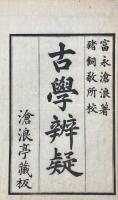 富永滄浪著
豬飼敬所校
古學辨疑
滄浪亭藏板